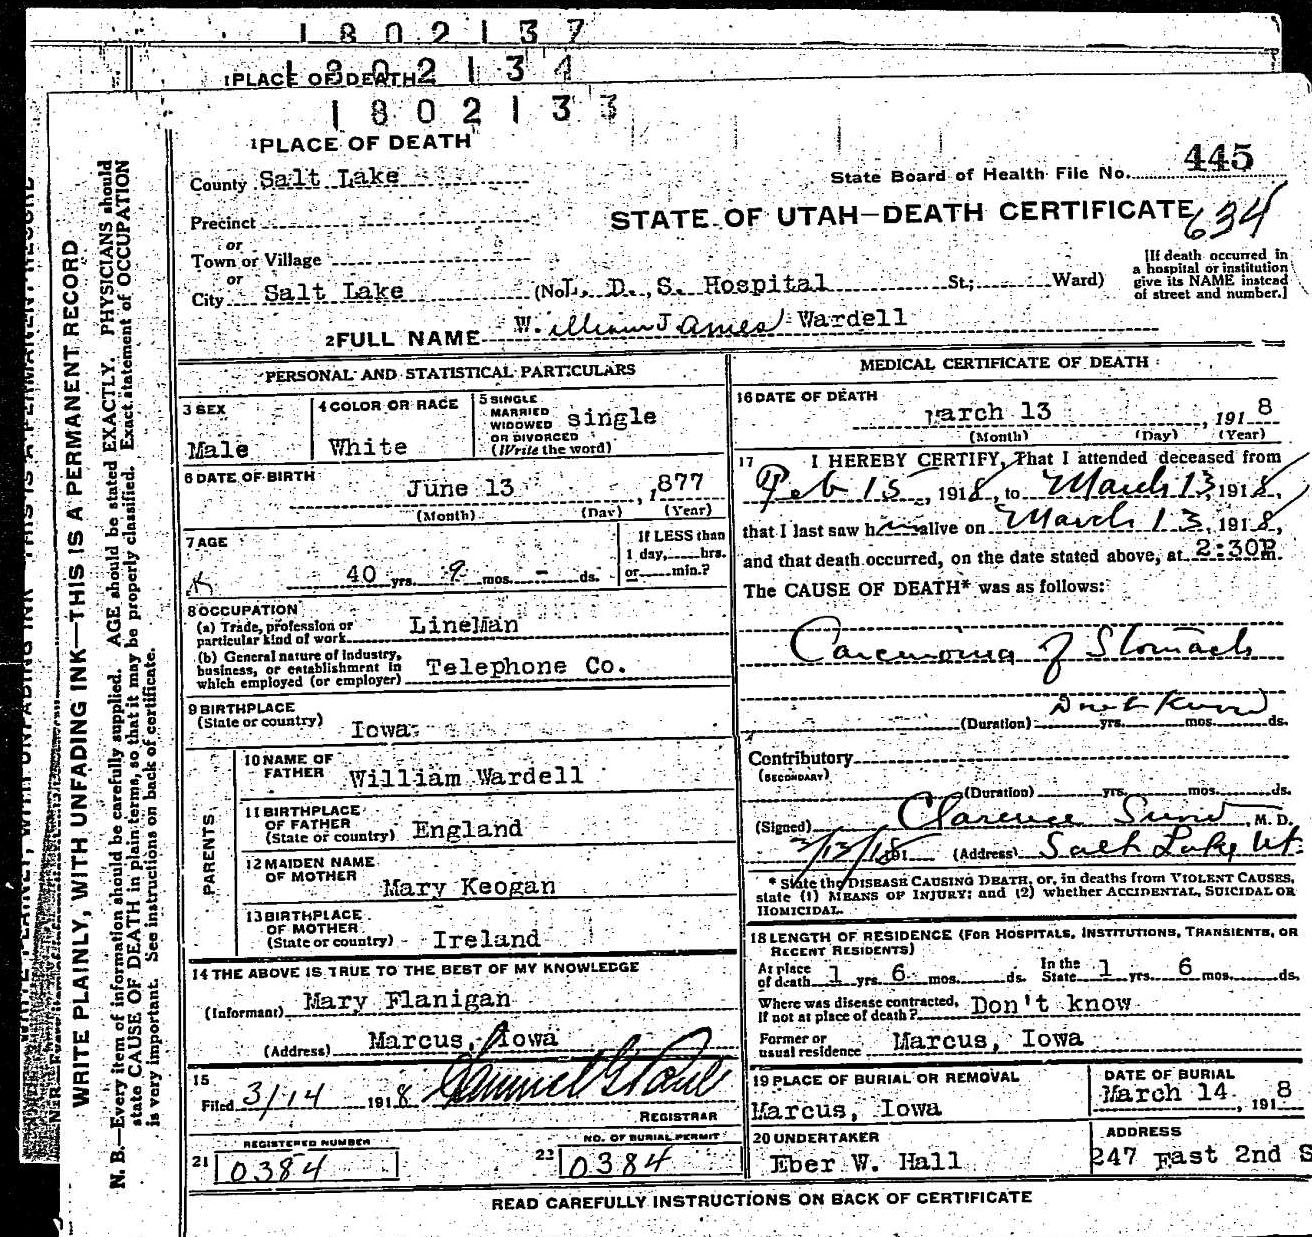 1 8 0 2 1 3 7
1 8 0 2 1 3 4
1 PLACE OF DEATH
1 8 0 2 1 3 3
1 PLACE OF DEATH
County Salt Lake
State Board of Health File No. 445
Precinct
STATE OF UTAH—DEATH CERTIFICATE
634
or
Town or Village
or
City Salt Lake (No. L. D. S. Hospital St; Ward)
[If death occurred in
a hospital or institution
give its NAME instead
of street and number.]
2 FULL NAME William James Wardell
PERSONAL AND STATISTICAL PARTICULARS
3 SEX
Male
4 COLOR OR RACE
White
5 SINGLE
MARRIED
WIDOWED
OR DIVORCED
(Write the word)
single
6 DATE OF BIRTH
June 13, 1877
(Month) (Day) (Year)
7 AGE
40 yrs. 9 mos. - ds.
If LESS than
1 day, hrs.
or min.?
8 OCCUPATION
(a) Trade, profession or
particular kind of work LineMan
(b) General nature of industry,
business, or establishment in
which employed (or employer) Telephone Co.
9 BIRTHPLACE
(State or country) Iowa.
PARENTS
10 NAME OF
FATHER William Wardell
11 BIRTHPLACE
OF FATHER
(State or country) England
12 MAIDEN NAME
OF MOTHER Mary Keogan
13 BIRTHPLACE
OF MOTHER
(State or country) Ireland
14 THE ABOVE IS TRUE TO THE BEST OF MY KNOWLEDGE
(Informant) Mary Flanigan
(Address) Marcus, Iowa
15
Filed 3/14 1918
REGISTRAR
REGISTERED NUMBER
21 0384
NO. OF BURIAL PERMIT
22 0384
MEDICAL CERTIFICATE OF DEATH
16 DATE OF DEATH
March 13, 1918
(Month) (Day) (Year)
17 I HEREBY CERTIFY, That I attended deceased from
Feb 15, 1918, to March 13, 1918,
that I last saw him alive on March 13, 1918,
and that death occurred, on the date stated above, at 2:30P m.
The CAUSE OF DEATH* was as follows:
Carcinoma of Stomach
Don't Know
(Duration) yrs. mos. ds.
Contributory
(SECONDARY)
(Duration) yrs. mos. ds.
(Signed) Clarence M. D.
191 (Address) Salt Lake Ut.
* State the DISEASE CAUSING DEATH, or, in deaths from VIOLENT CAUSES,
state (1) MEANS OF INJURY; and (2) whether ACCIDENTAL, SUICIDAL OR
HOMICIDAL.
18 LENGTH OF RESIDENCE (FOR HOSPITALS, INSTITUTIONS, TRANSIENTS, OR
RECENT RESIDENTS)
At place
of death 1 yrs. 6 mos. ds. In the
State 1 yrs. 6 mos. ds.
Where was disease contracted,
If not at place of death? Don't know
Former or
usual residence Marcus, Iowa
19 PLACE OF BURIAL OR REMOVAL
Marcus, Iowa
DATE OF BURIAL
March 14, 1918
20 UNDERTAKER
Eber W. Hall
ADDRESS
247 East 2nd S
READ CAREFULLY INSTRUCTIONS ON BACK OF CERTIFICATE
WRITE PLAINLY, WITH UNFADING INK—THIS IS A PERMANENT RECORD
N. B.—Every item of information should be carefully supplied. AGE should be stated EXACTLY. PHYSICIANS should
state CAUSE OF DEATH in plain terms, so that it may be properly classified. Exact statement of OCCUPATION
is very important. See instructions on back of certificate.